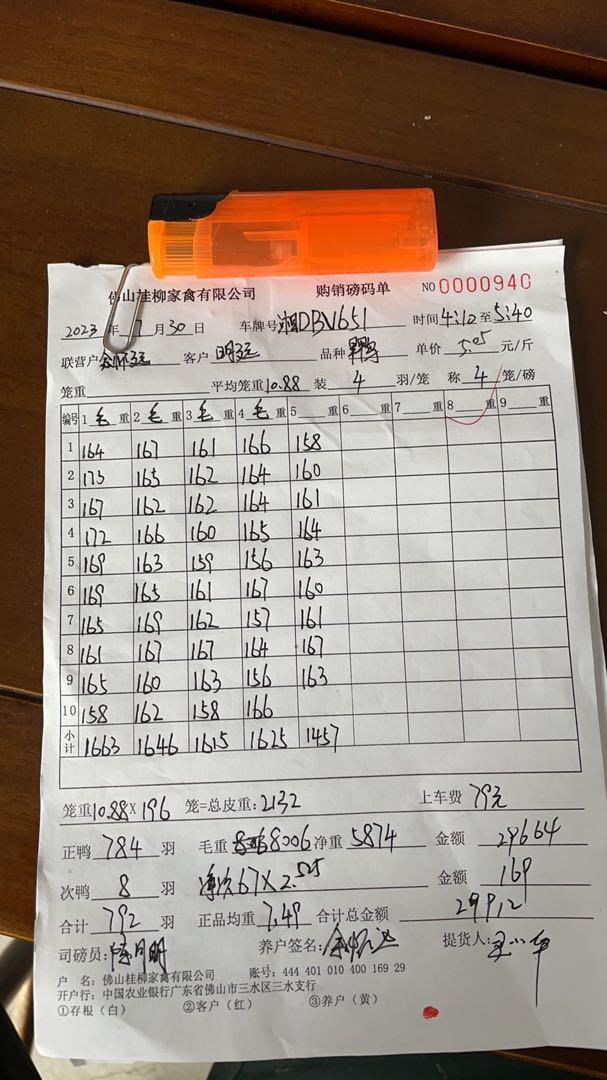 佛山桂柳家禽有限公司 购销磅码单 NO 0000940
2023年7月30日 车牌号湘DBV651 时间4:10至5:40
联营户 客户 明远 品种 单价5.05元/斤
笼重 平均笼重10.88 装4羽/笼 称4笼/磅
编号 1毛重 2毛重 3毛重 4毛重 5重 6重 7重 8重 9重
1 164 167 161 166 158
2 175 165 162 164 160
3 167 162 162 164 161
4 172 166 160 165 164
5 169 163 159 156 163
6 169 165 161 167 160
7 165 169 162 157 161
8 161 167 167 164 167
9 165 160 163 156 163
10 158 162 158 166
小计 1663 1646 1615 1625 1457
笼重10.88×196 笼=总皮重:2132 上车费79元
正鸭784羽 毛重8006净重5874 金额29664
次鸭8羽 67×2.525 金额169
合计792羽 正品均重7.49 合计总金额29912
司磅员: 养户签名: 提货人:
户 名:佛山桂柳家禽有限公司 账号:444 401 010 400 169 29
开户行:中国农业银行广东省佛山市三水区三水支行
①存根(白) ②客户(红) ③养户(黄)